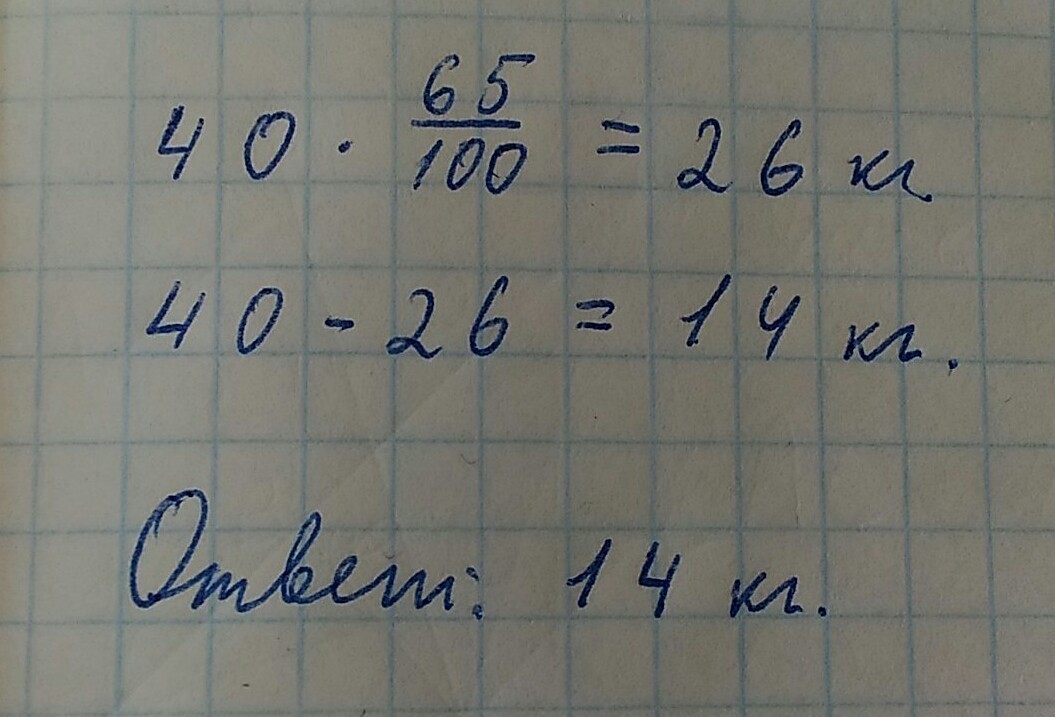 40 · 65/100 = 26 кг
40 - 26 = 14 кг.
Ответ: 14 кг.